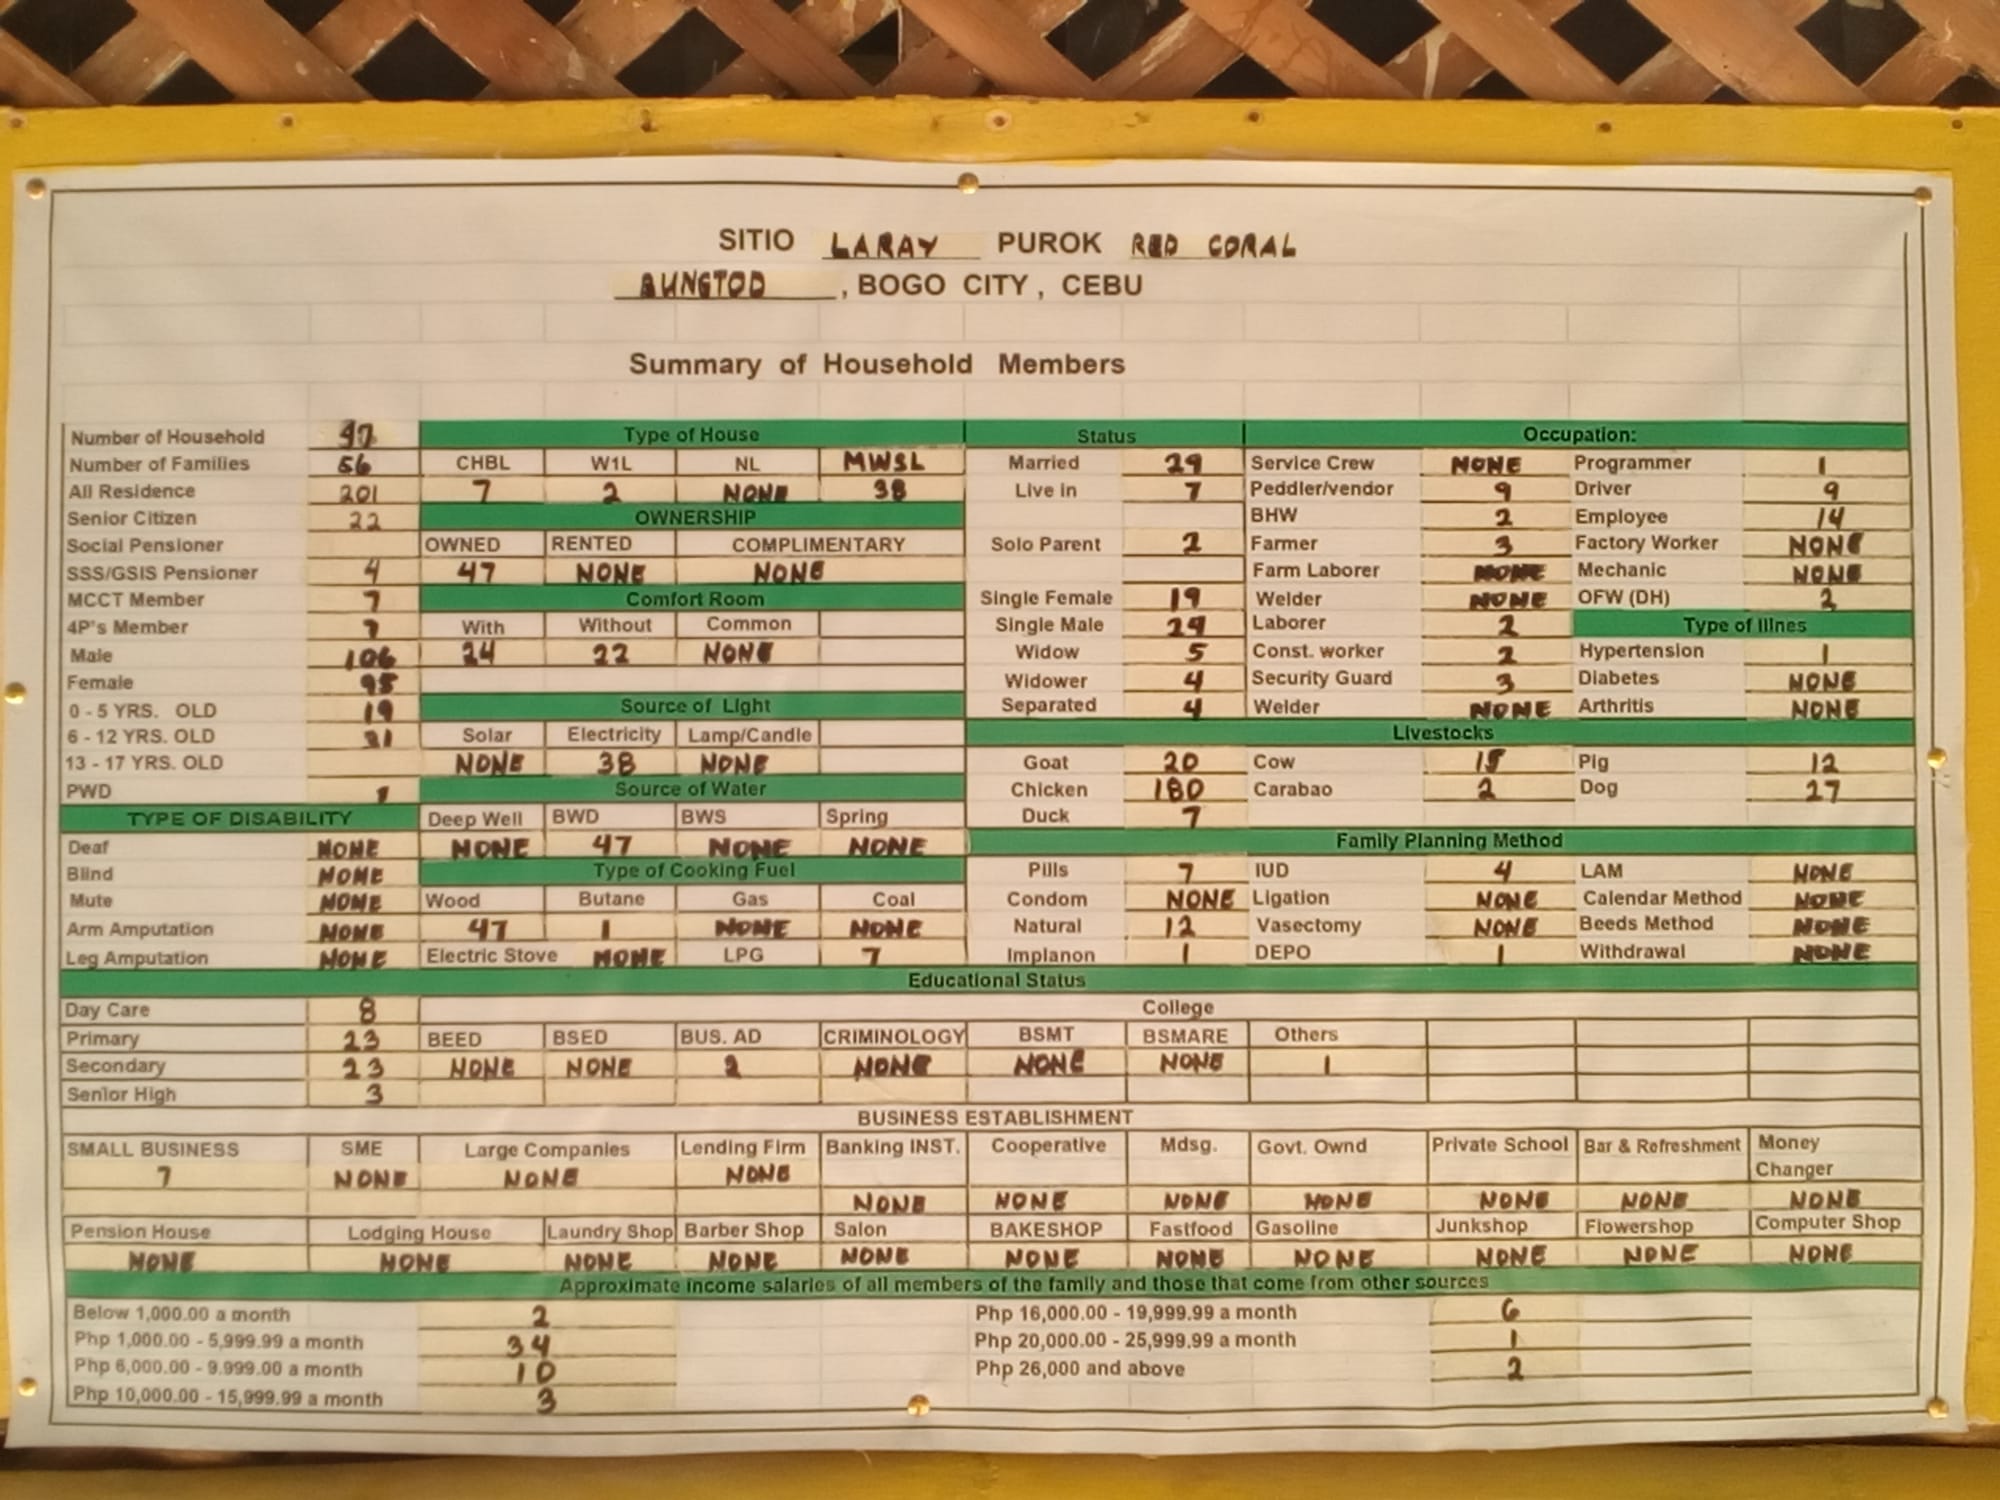 SITIO LARAY PUROK RED CORAL
BUNGTOD , BOGO CITY , CEBU
Summary of Household Members
Number of Household 47 Type of House Status Occupation:
Number of Families 56 CHBL W1L NL MWSL Married 29 Service Crew NONE Programmer 1
All Residence 201 7 2 NONE 38 Live in 7 Peddler/vendor 9 Driver 9
Senior Citizen 22 OWNERSHIP BHW 2 Employee 14
Social Pensioner OWNED RENTED COMPLIMENTARY Solo Parent 2 Farmer 3 Factory Worker NONE
SSS/GSIS Pensioner 4 47 NONE NONE Farm Laborer NONE Mechanic NONE
MCCT Member 7 Comfort Room Single Female 19 Welder NONE OFW (DH) 2
4P's Member 7 With Without Common Single Male 29 Laborer 2 Type of Illnes
Male 106 24 22 NONE Widow 5 Const. worker 2 Hypertension 1
Female 95 Widower 4 Security Guard 3 Diabetes NONE
0 - 5 YRS. OLD 19 Source of Light Separated 4 Welder NONE Arthritis NONE
6 - 12 YRS. OLD 31 Solar Electricity Lamp/Candle Livestocks
13 - 17 YRS. OLD NONE 38 NONE Goat 20 Cow 15 Pig 12
PWD 1 Source of Water Chicken 180 Carabao 2 Dog 27
TYPE OF DISABILITY Deep Well BWD BWS Spring Duck 7
Deaf NONE NONE 47 NONE NONE Family Planning Method
Blind NONE Type of Cooking Fuel Pills 7 IUD 4 LAM NONE
Mute NONE Wood Butane Gas Coal Condom NONE Ligation NONE Calendar Method NONE
Arm Amputation NONE 47 1 NONE NONE Natural 12 Vasectomy NONE Beeds Method NONE
Leg Amputation NONE Electric Stove NONE LPG 7 Implanon 1 DEPO 1 Withdrawal NONE
Educational Status
Day Care 8 College
Primary 23 BEED BSED BUS. AD CRIMINOLOGY BSMT BSMARE Others
Secondary 23 NONE NONE 2 NONE NONE NONE 1
Senior High 3
BUSINESS ESTABLISHMENT
SMALL BUSINESS SME Large Companies Lending Firm Banking INST. Cooperative Mdsg. Govt. Ownd Private School Bar & Refreshment Money Changer
7 NONE NONE NONE
NONE NONE NONE NONE NONE NONE NONE
Pension House Lodging House Laundry Shop Barber Shop Salon BAKESHOP Fastfood Gasoline Junkshop Flowershop Computer Shop
NONE NONE NONE NONE NONE NONE NONE NONE NONE NONE NONE
Approximate income salaries of all members of the family and those that come from other sources
Below 1,000.00 a month 2 Php 16,000.00 - 19,999.99 a month 6
Php 1,000.00 - 5,999.99 a month 34 Php 20,000.00 - 25,999.99 a month 1
Php 6,000.00 - 9.999.00 a month 10 Php 26,000 and above 2
Php 10,000.00 - 15,999.99 a month 3